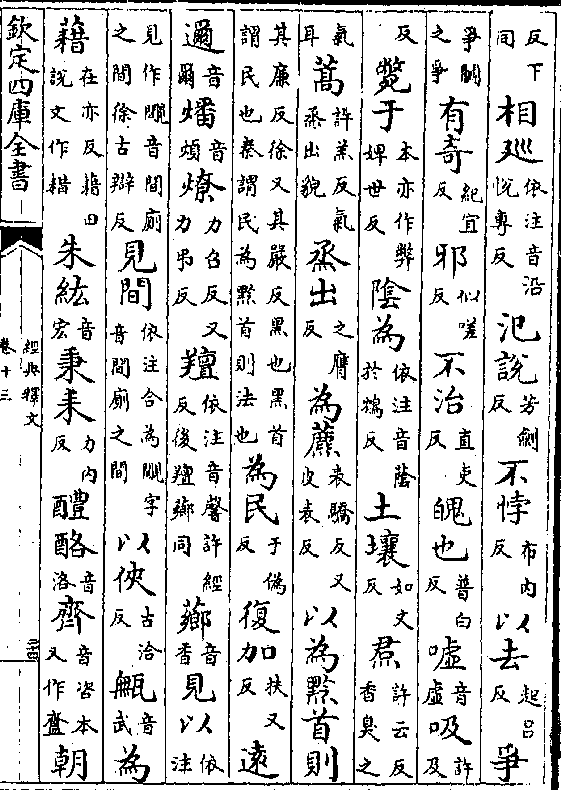 反下同相廵依注音沿恱專反氾説芳劒反不悖布内反以去起吕反爭
爭鬭之爭有奇紀宜反邪似嗟反不治直吏反魄也普白反嘘音虛吸許及
反斃于本亦作弊婢世反陰為依注音蔭於鴆反土壤如丈反焄許云反香臭之
氣耳蒿許羔反氣烝出貌烝出之膺反為藨表驕反又皮表反以為黔首則
其廉反徐又其嚴反黑也黑首謂民也秦謂民為黔首則法也為民于偽反復加扶又反遠
邇音爾燔音煩燎力召反又力弔反羶依注音馨許經反後羶薌同薌音香見以依注
見作覸音間厠之間徐古辯反見間依注合為覸字音間厠之間以俠古洽反甒音武為
藉在亦反藉田説文作耤朱紘音宏秉耒力内反醴酪音洛齊音咨本又作齍朝
欽定四庫全書
經典釋文
卷十三